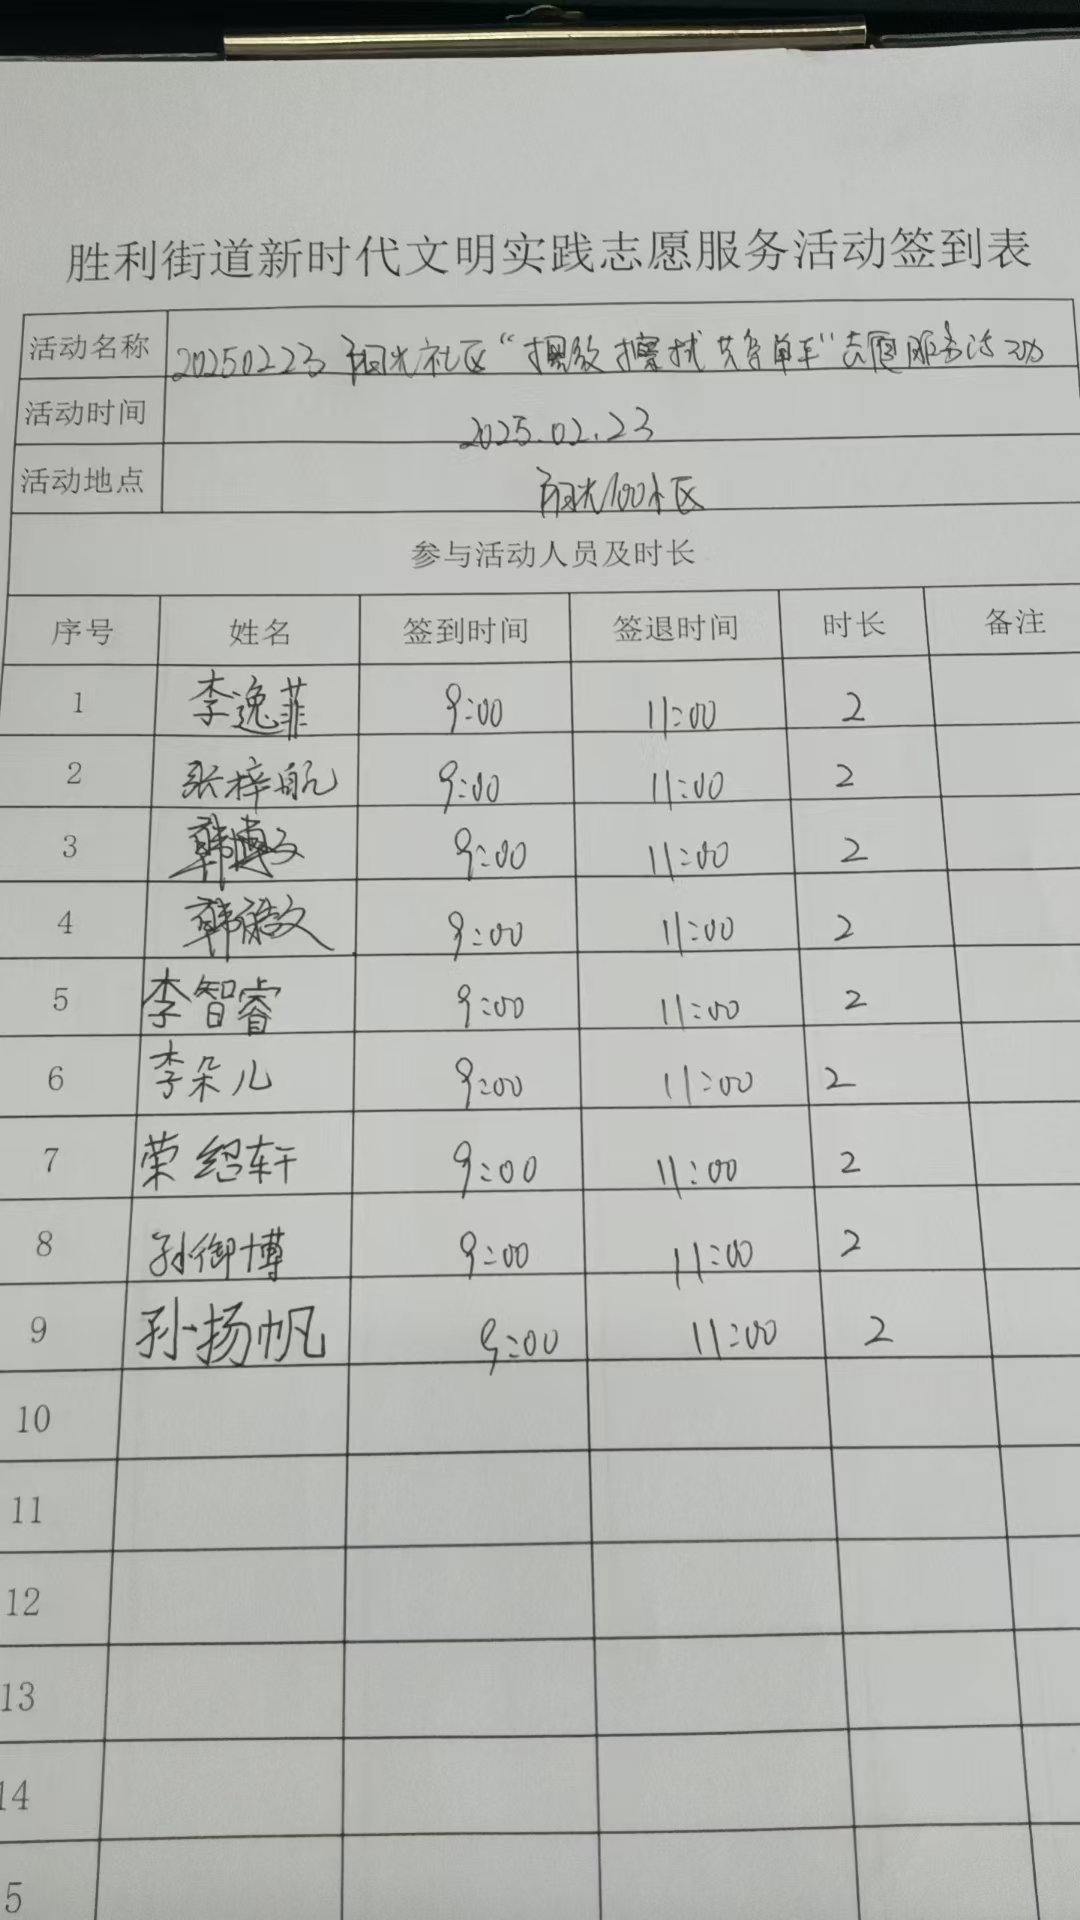 胜利街道新时代文明实践志愿服务活动签到表
活动名称 20250223阳光社区“摆放擦拭共享单车”志愿服务活动
活动时间 2025.02.23
活动地点 阳光100小区
参与活动人员及时长
序号 姓名 签到时间 签退时间 时长 备注
1 李逸菲 9:00 11:00 2
2 张梓航 9:00 11:00 2
3 韩博文 9:00 11:00 2
4 9:00 11:00 2
5 李智睿 9:00 11:00 2
6 李朵儿 9:00 11:00 2
7 荣绍轩 9:00 11:00 2
8 孙御博 9:00 11:00 2
9 孙扬帆 9:00 11:00 2
10
11
12
13
14
5